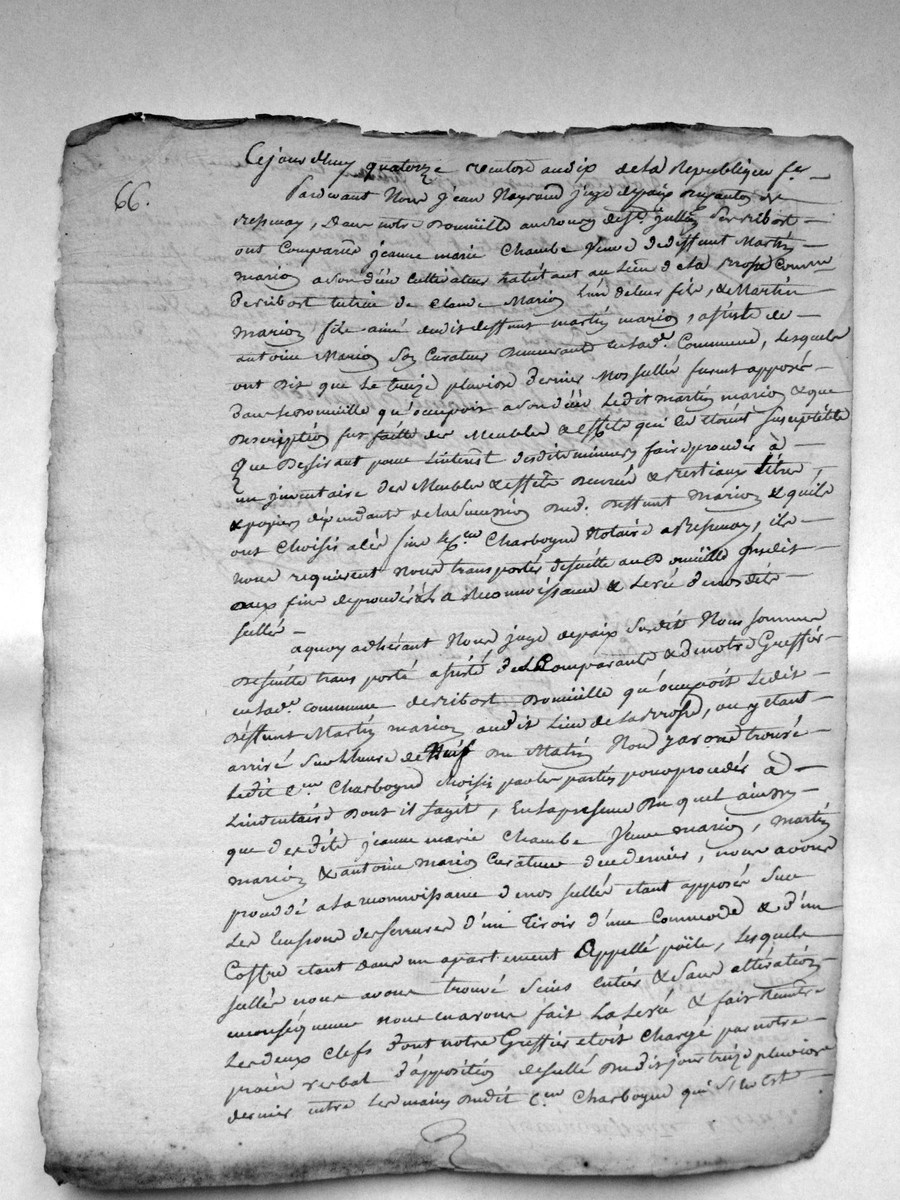 Cejourdhuy quatorze ventose an dix de la Republique f.se
66.
Pardevant Nous jean Reyraud juge de paix du canton de
Ressouay, dans notre domicille au bourg de St. jullien
ont Comparûs jeanne marie Chambe veuve de deffunt Martin
marion a son decé Cultivateur habitant au Lieu de la
tutrice de Claude Marion l'un de leur fils, & Martin
marion fils ainé dudit deffunt martin marion, assisté de
antoine Marion son Curateur demeurant en lad.e Commune, lesquels
ont dit que le treize pluviose dernier nos scellés furent apposés
dans le domicille qu'occupoit a son décé ledit martin marion & que
description fut faitte des Meubles & effets qui n'en étoient susceptible
que desirant pour l'interest desdits mineurs faire proceder à
un inventaire des Meubles & effets denrées & bestiaux titres
& papiers dépendants de la succession dud. deffunt Marion & qu'ils
ont choisis a cet fins le C.en Charboyne Notaire a Ressouay, ils
nous requierent Nous transporter de suitte au domicille susdit
aux fins de proceder à la Reconnoissance & levée de nosdits
scellés
aquoy adhérant Nous juge de paix susdit Nous sommes
de suitte transporté assisté des Comparants & de notre Greffier
en lad.e commune domicille qu'occupoit ledit
deffunt Martin marion audit Lieu de, ou y étant
arrivé sur l'heure de Neuf du Matin Nous y avons trouvé
Ledit C.en Charboyne choisis par les parties pour proceder à
L'inventaire dont il s'agit, En la presence duquel ainsy
que desdits jeanne marie Chambe veuve marion, martin
marion & antoine marion Curateur de ce dernier, nous avons
procedé a la reconnoissance de nos scellés étant apposés sur
les serrures d'un tiroir d'une Commode & d'un
Coffre étant dans un apartement appellé poële, lesquels
scellés nous avons trouvé seins entier & sans altération
en conséquence nous en avons fait la levée & fait remettre
les deux clefs dont notre Greffier etoit chargé par notre
procès verbal d'apposition de scellé dudit jour treize pluviose
dernier entre les mains dudit C.en Charboyne qui